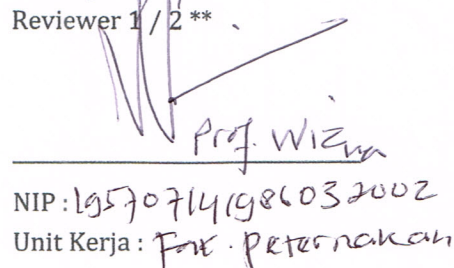 Reviewer 1 / 2 **
Prof. Wizna
NIP : 195707141986032002
Unit Kerja : Fak. Peternakan